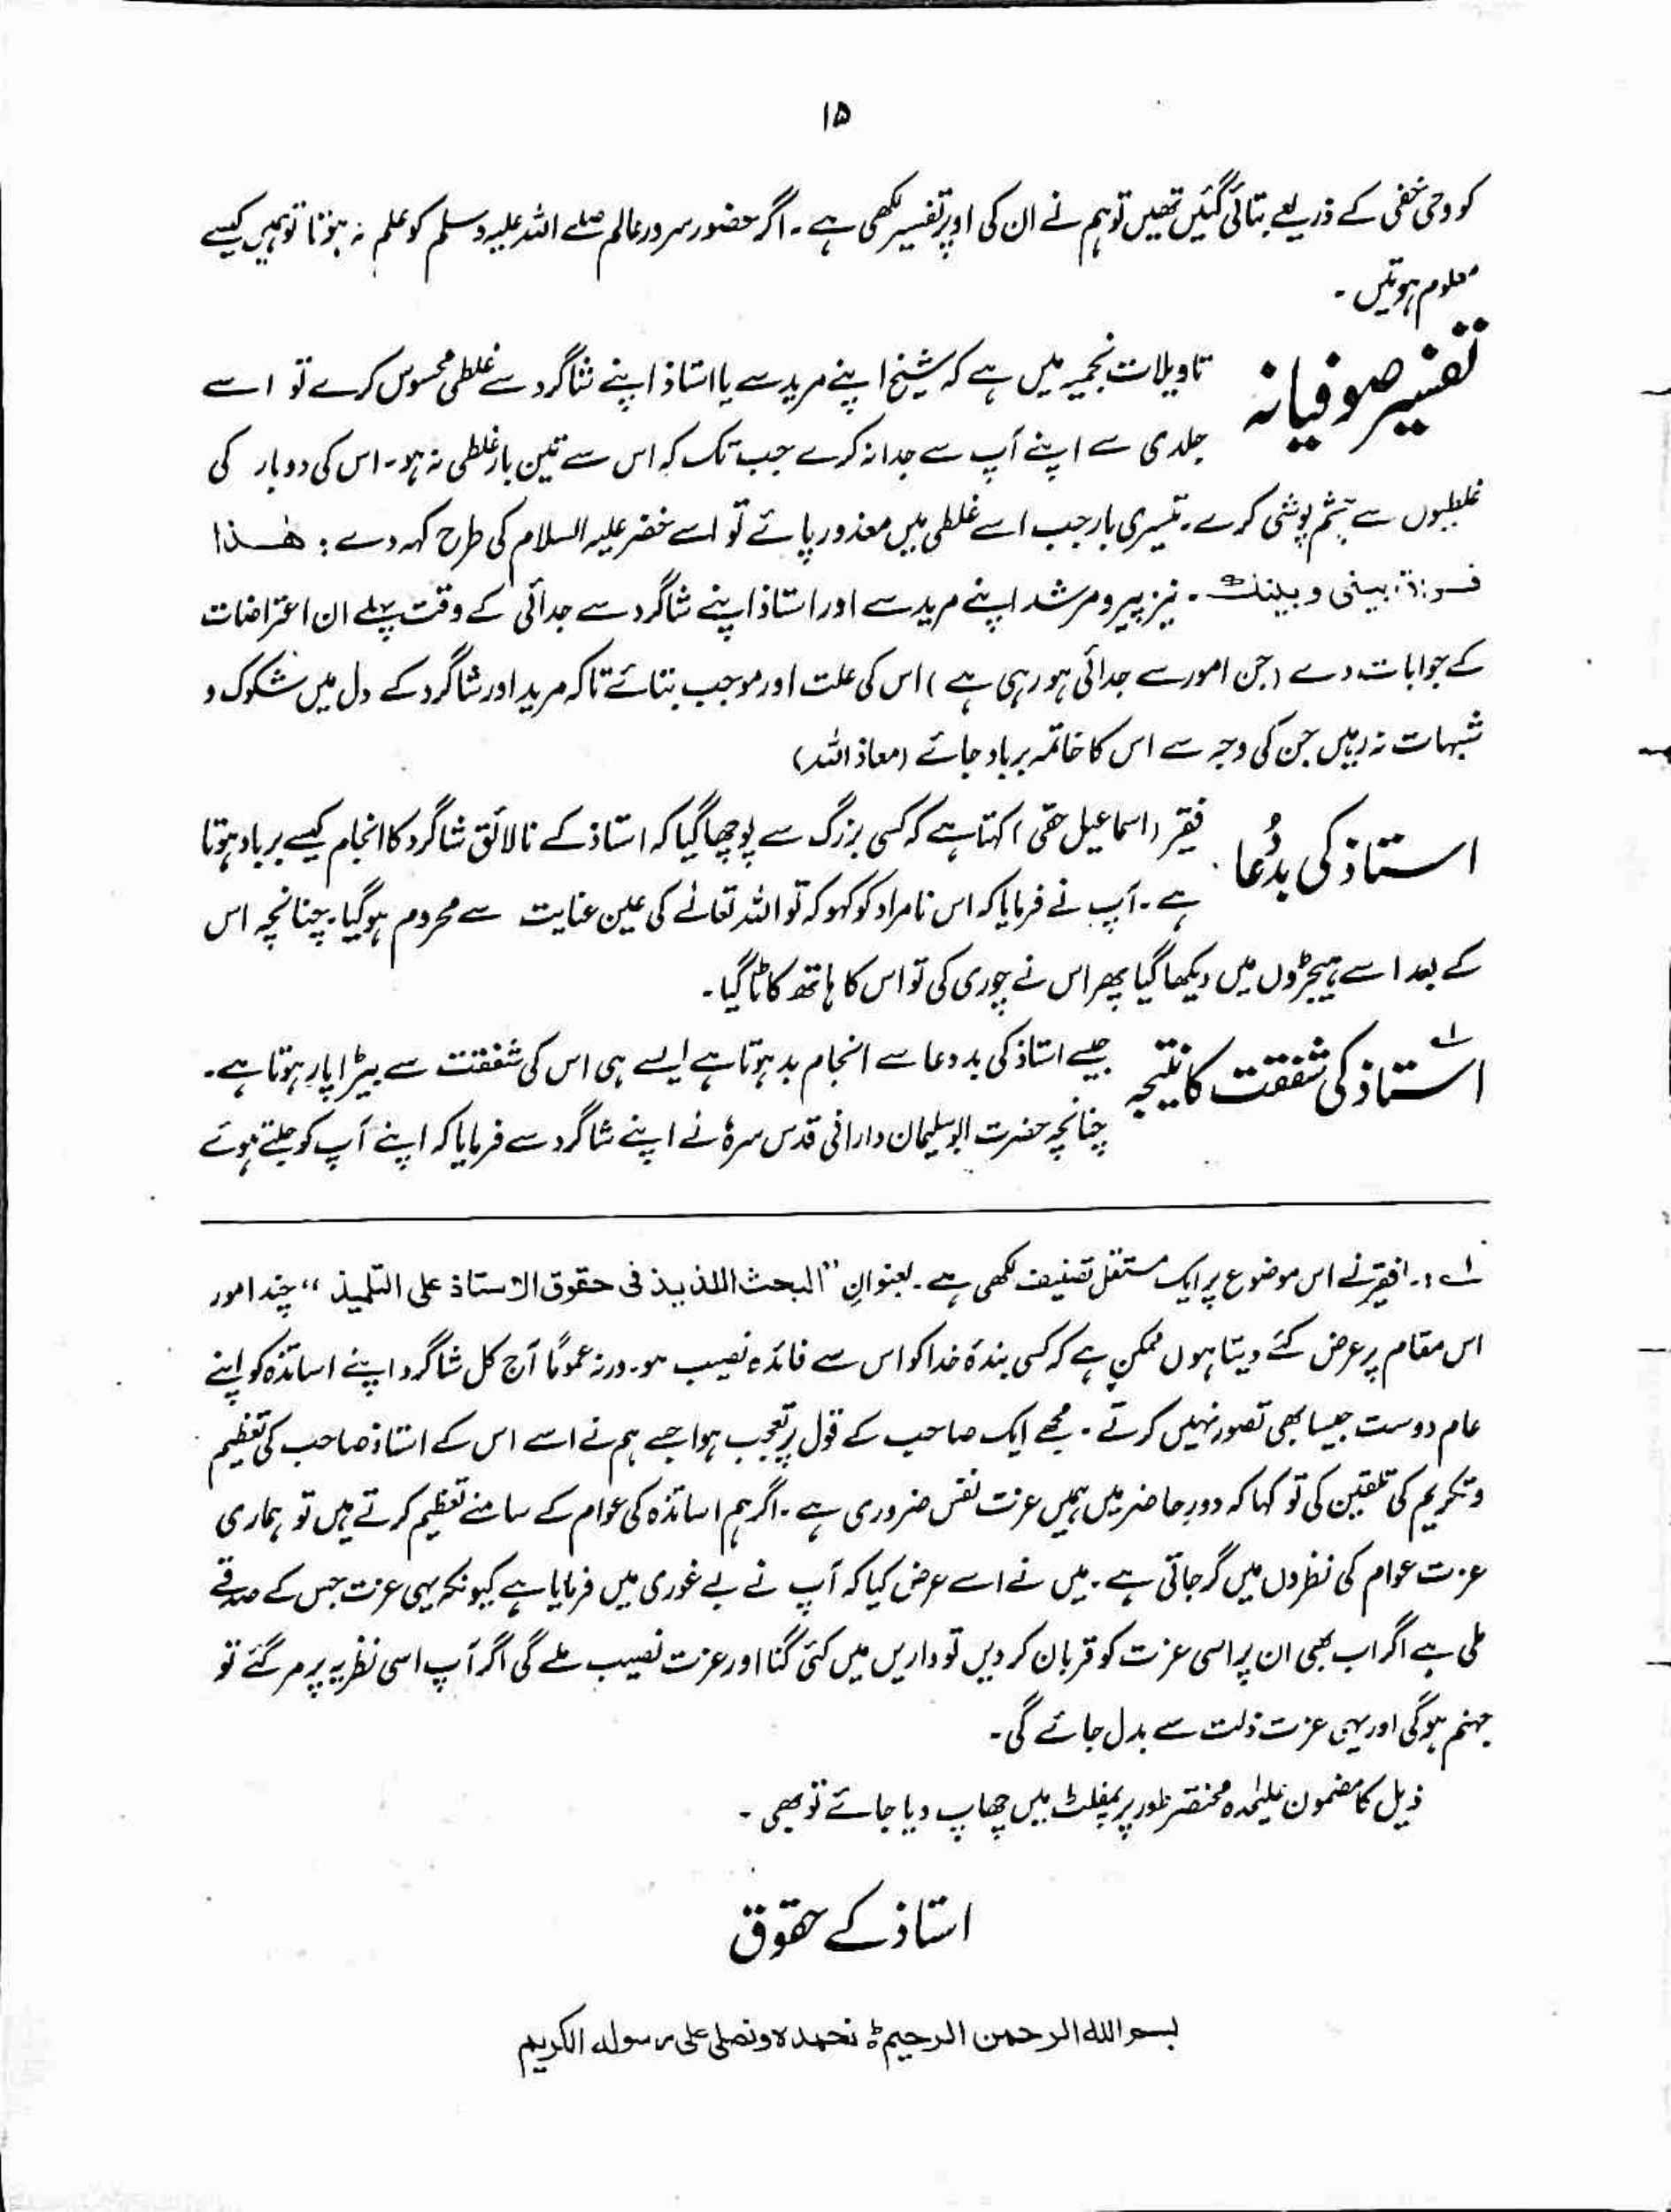 ۱۵
کو وحی خفی کے ذریعے بتائی گئیں تھیں تو ہم نے ان کی اوپر تفسیر لکھی ہے۔ اگر حضور سرور عالم صلے اللہ علیہ وسلم کو علم نہ ہوتا تو ہمیں کیسے
معلوم ہوتیں۔
تفسیر صوفیانہ تاویلات نجمیہ میں ہے کہ شیخ اپنے مرید سے یا استاذ اپنے شاگرد سے غلطی محسوس کرے تو اسے
جلدی سے اپنے آپ سے جدا نہ کرے جب تک کہ اس سے تین بار غلطی نہ ہو۔ اس کی دو بار کی
غلطیوں سے چشم پوشی کرے۔ تیسری بار جب اسے غلطی میں معذور پائے تو اسے خضر علیہ السلام کی طرح کہہ دے: ھٰذا
فراق بینی وبینک۔ نیز پیر و مرشد اپنے مرید سے اور استاذ اپنے شاگرد سے جدائی کے وقت پہلے ان اعتراضات
کے جوابات دے (جن امور سے جدائی ہو رہی ہے) اس کی علت اور موجب بتائے تاکہ مرید اور شاگرد کے دل میں شکوک و
شبہات نہ رہیں جن کی وجہ سے اس کا خاتمہ برباد جائے (معاذ اللہ)
استاذ کی بددُعا فقیر (اسماعیل حقی) کہتا ہے کہ کسی بزرگ سے پوچھا گیا کہ استاذ کے نالائق شاگرد کا انجام کیسے برباد ہوتا
ہے۔ آپ نے فرمایا کہ اس نامراد کو کہو کہ تو اللہ تعالٰے کی عین عنایت سے محروم ہوگیا۔ چنانچہ اس
کے بعد اسے ہیجڑوں میں دیکھا گیا پھر اس نے چوری کی تو اس کا ہاتھ کاٹا گیا۔
استاذ کی شفقت کا نتیجہ؂۱ جیسے استاذ کی بددعا سے انجام بد ہوتا ہے ایسے ہی اس کی شفقت سے بیڑا پار ہوتا ہے۔
چنانچہ حضرت ابوسلیمان دارانی قدس سرہٗ نے اپنے شاگرد سے فرمایا کہ اپنے آپ کو جلتے ہوئے
؂۱:۔ فقیر نے اس موضوع پر ایک مستقل تصنیف لکھی ہے۔ بعنوانِ "البحث اللذیذ فی حقوق الاستاذ علی التلمیذ" چند امور
اس مقام پر عرض کئے دیتا ہوں ممکن ہے کہ کسی بندۂ خدا کو اس سے فائدہ نصیب ہو۔ ورنہ عموماً آج کل شاگرد اپنے اساتذہ کو اپنے
عام دوست جیسا بھی تصور نہیں کرتے۔ مجھے ایک صاحب کے قول پر تعجب ہوا جسے ہم نے اسے اس کے استاذ صاحب کی تعظیم
و تکریم کی تلقین کی تو کہا کہ دورِ حاضر میں ہمیں عزت نفس ضروری ہے۔ اگر ہم اساتذہ کی عوام کے سامنے تعظیم کرتے ہیں تو ہماری
عزت عوام کی نظروں میں گر جاتی ہے۔ میں نے اسے عرض کیا کہ آپ نے بے غوری میں فرمایا ہے کیونکہ یہی عزت جس کے صدقے
ملی ہے اگر اب بھی ان پر اسی عزت کو قربان کر دیں تو دارین میں کئی گنا اور عزت نصیب ملے گی اگر آپ اسی نظریہ پر مر گئے تو
جہنم ہوگی اور یہی عزت ذلت سے بدل جائے گی۔
ذیل کا مضمون علیٰحدہ مختصر طور پر پمفلٹ میں چھاپ دیا جائے تو بھی۔
استاذ کے حقوق
بسم اللہ الرحمن الرحیم ط نحمدہ ونصلی علی رسولہ الکریم